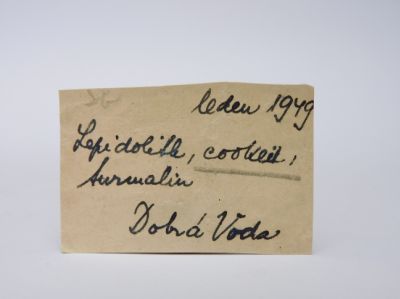 leden 1949
Lepidolith, cookeit,
turmalin
Dobrá Voda